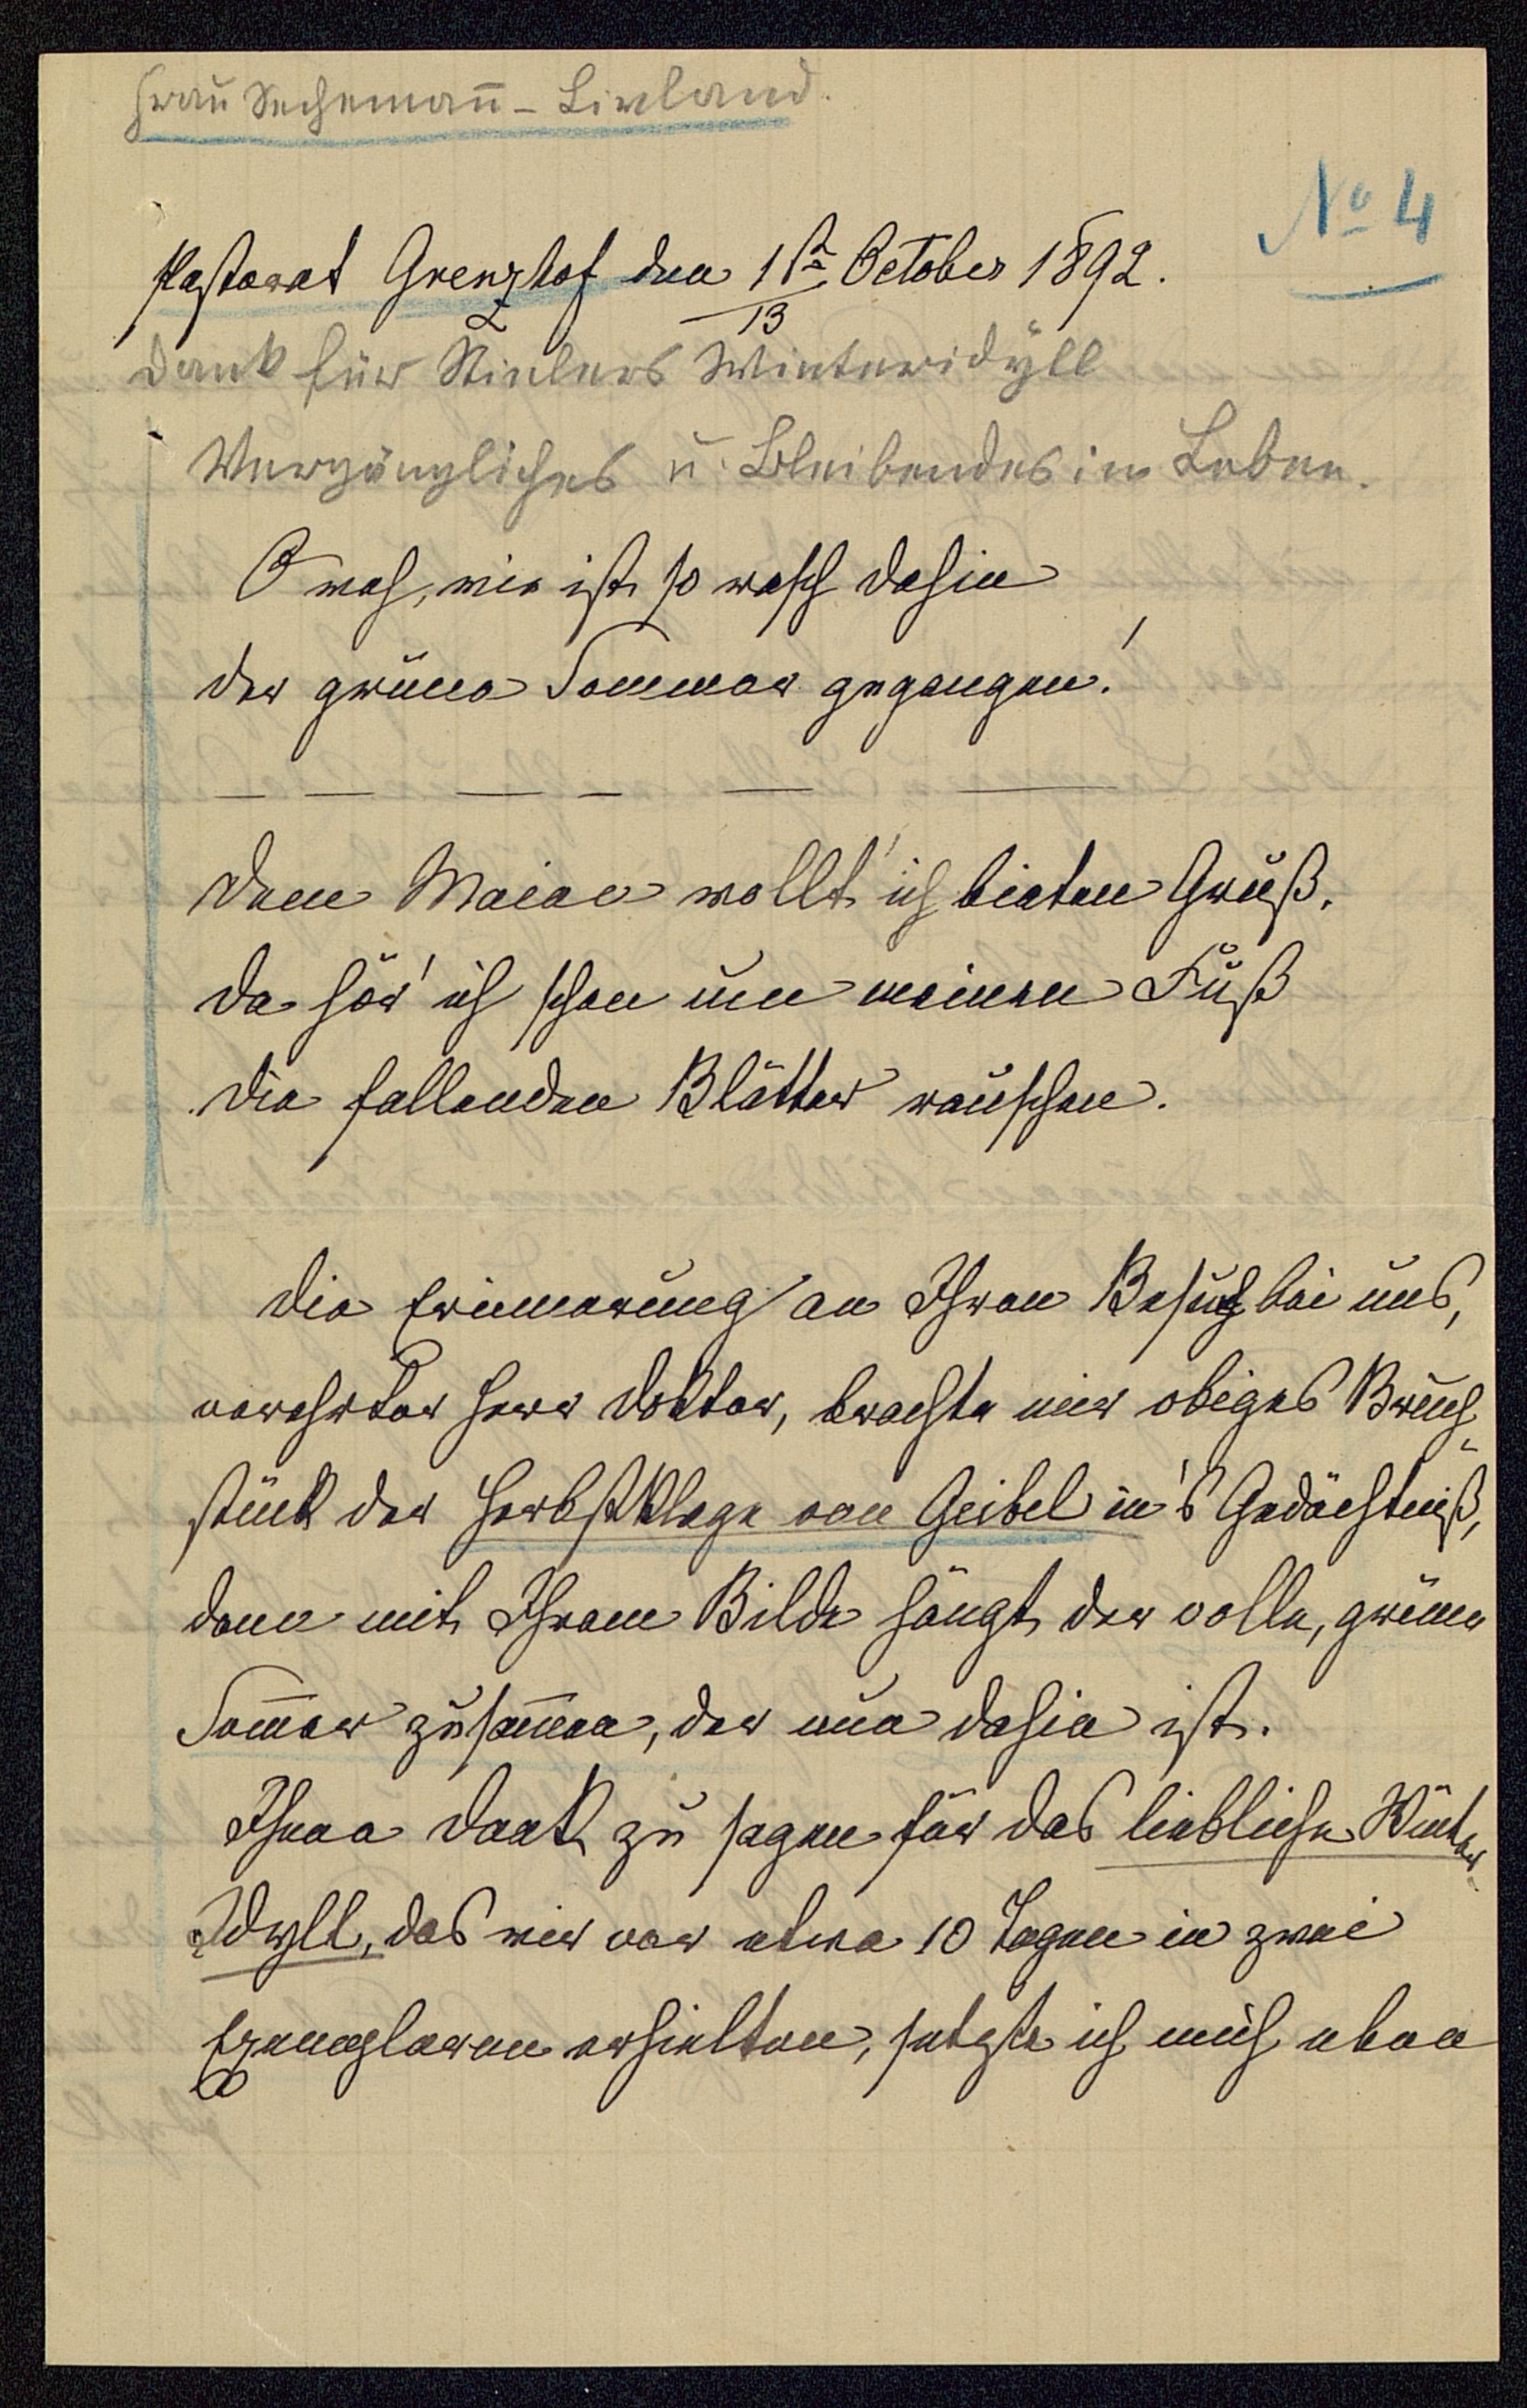 Frau Sechemañ - Livland.
No 4
Pastorat Grenzhof den 1st October 1892.
13
Dank für Stielers Winteridyll
Vergängliches u. Bleibendes im Leben.
O weh, wie ist so rasch dahin
der grüne Sommer gegangen!
Dem Maien wollt' ich bieten Gruß,
da hör' ich schon um meinen Fuß
die fallenden Blätter rauschen.
Die Erinnerung an Ihren Besuch bei uns,
verehrter Herr Doktor, brachte mir obiges Bruch-
stück der Herbstklage von Geibel in's Gedächtniß,
denn mit Ihrem Bilde hängt der volle, grüne
Som̄er zusam̄en, der nun dahin ist.
Ihnen Dank zu sagen für das liebliche Winter
Idyll, das wir vor etwa 10 Tagen in zwei
Exemplaren erhielten, setzte ich mich eben